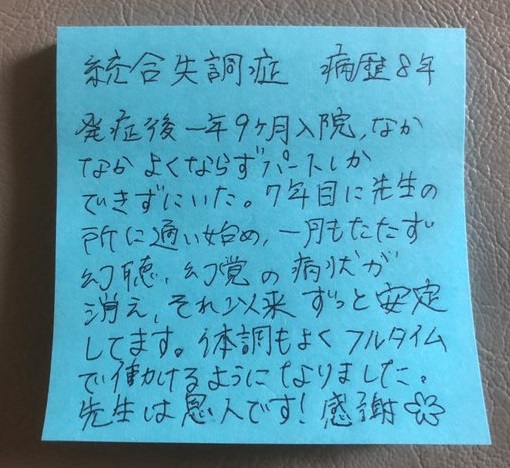 統合失調症 病歴8年
発症後一年9ヶ月入院,なか
なかよくならずパートしか
できずにいた。7年目に先生の
所に通い始め,一月もたたず
幻聴,幻覚の病状が
消え,それ以来ずっと安定
してます。体調もよくフルタイム
で働けるようになりました。
先生は恩人です!感謝